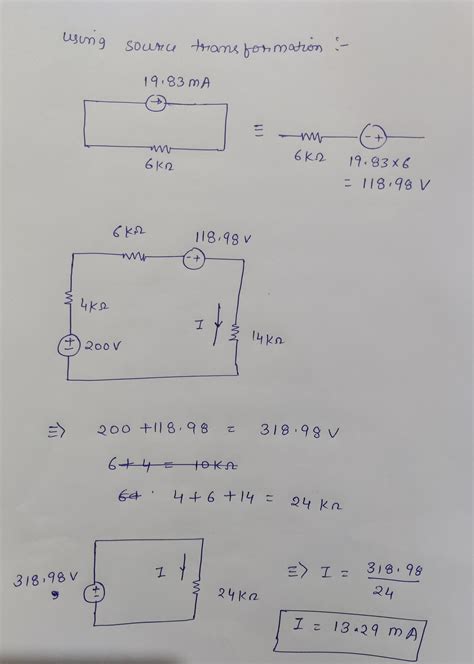 using source transformation :-
19.83mA
6KΩ
≡
6KΩ
19.83×6
= 118.98 V
6KΩ
118.98 V
4KΩ
200V
I
14KΩ
=> 200 + 118.98 = 318.98 V
6 + 4 = 10KΩ
64 · 4 + 6 + 14 = 24 KΩ
318.98V
I
24KΩ
=> I = 318.98
24
I = 13.29 mA